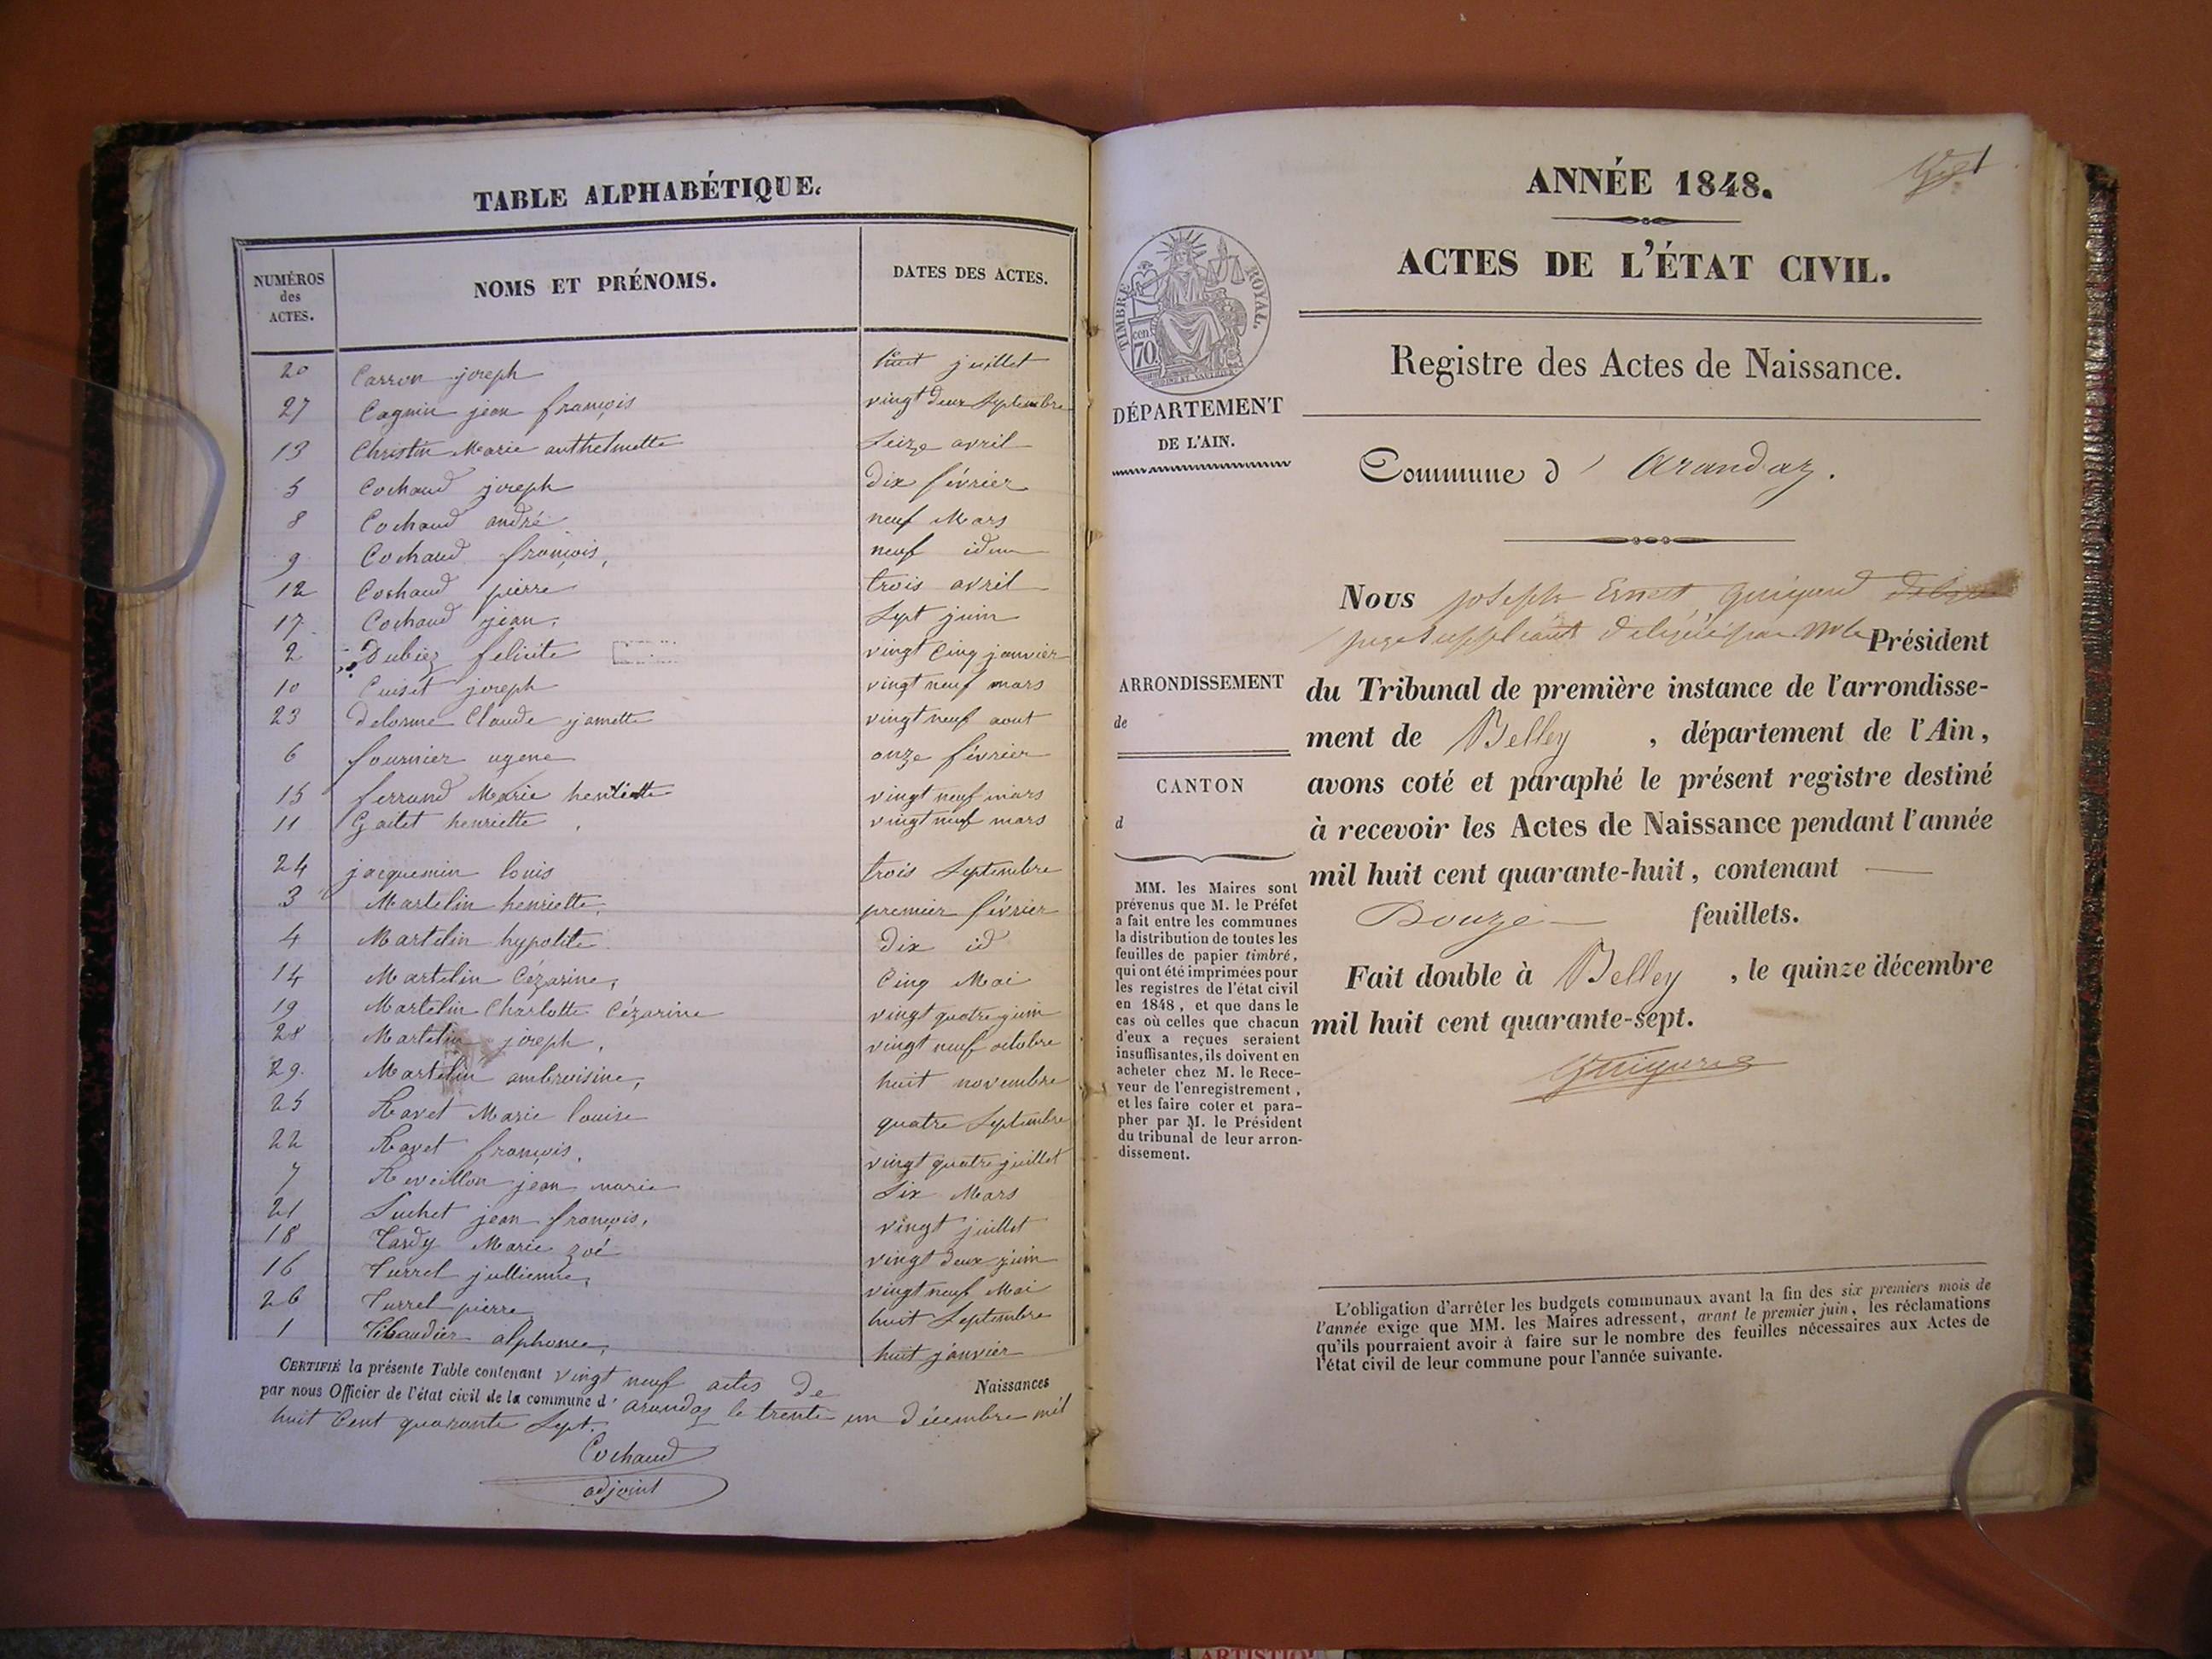 TABLE ALPHABÉTIQUE.
NUMÉROS des ACTES. NOMS ET PRÉNOMS. DATES DES ACTES.
20 Carron joseph huit juillet
27 Cagnin jean françois vingt deux Septembre
13 Christin Marie anthelmette Seize avril
5 Cochaud joseph dix février
8 Cochaud andré neuf Mars
9 Cochaud françois, neuf idem
12 Cochaud pierre trois avril
17 Cochaud jean, Sept juin
2 Dubiez felicite vingt Cinq janvier
10 Cuiset joseph vingt neuf mars
23 Delorme Claude jamette vingt neuf aout
6 fournier ugene onze février
15 ferrand Marie henriette vingt neuf mars
11 Gaitet henriette vingt neuf mars
24 jacquemin louis trois Septembre
3 Martelin henriette, premier février
4 Martelin hypolite dix id
14 Martelin Cézarine, Cinq Mai
19 Martelin Charlotte Cézarine vingt quatre juin
28 Martelin joseph, vingt neuf octobre
29. Martelin ambroisine, huit novembre
25 Ravet Marie louise quatre Septembre
22 Ravet françois, vingt quatre juillet
7 Reveillon jean marie Six Mars
21 Suchet jean françois, vingt juillet
18 Tardy Marie zoé vingt deux juin
16 Turrel jullienne, vingt neuf Mai
26 Turrel pierre huit Septembre
1 Tibaudier alphonce, huit janvier
CERTIFIÉ la présente Table contenant vingt neuf actes de Naissances
par nous Officier de l'état civil de la commune d' arandas le trente un décembre mil
huit Cent quarante Sept.
Cochaud
adjoint
ANNÉE 1848.
ACTES DE L'ÉTAT CIVIL.
Registre des Actes de Naissance.
TIMBRE ROYAL.
cent.
70
DÉPARTEMENT
DE L'AIN.
Commune d' Arandaz.
Nous joseph Ernest Guigard
juge Suppléant délégué par Mr le Président
du Tribunal de première instance de l'arrondisse-
ment de Belley , département de l'Ain,
avons coté et paraphé le présent registre destiné
à recevoir les Actes de Naissance pendant l'année
mil huit cent quarante-huit, contenant
Douze feuillets.
Fait double à Belley , le quinze décembre
mil huit cent quarante-sept.
ARRONDISSEMENT
de
CANTON
d
MM. les Maires sont
prévenus que M. le Préfet
a fait entre les communes
la distribution de toutes les
feuilles de papier timbré,
qui ont été imprimées pour
les registres de l'état civil
en 1848, et que dans le
cas où celles que chacun
d'eux a reçues seraient
insuffisantes, ils doivent en
acheter chez M. le Rece-
veur de l'enregistrement,
et les faire coter et para-
pher par M. le Président
du tribunal de leur arron-
dissement.
L'obligation d'arrêter les budgets communaux avant la fin des six premiers mois de
l'année exige que MM. les Maires adressent, avant le premier juin, les réclamations
qu'ils pourraient avoir à faire sur le nombre des feuilles nécessaires aux Actes de
l'état civil de leur commune pour l'année suivante.